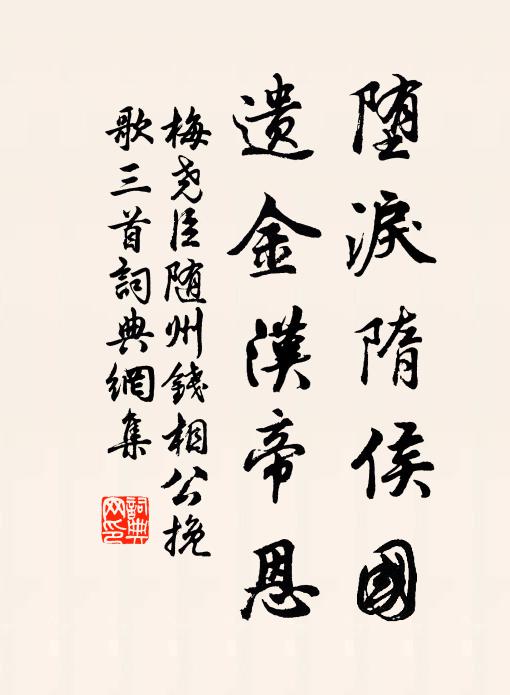 堕淚隋侯國
遗金漢帝恩
梅尧臣随州錢相公挽
歌三首詞典網集
詞典
网印